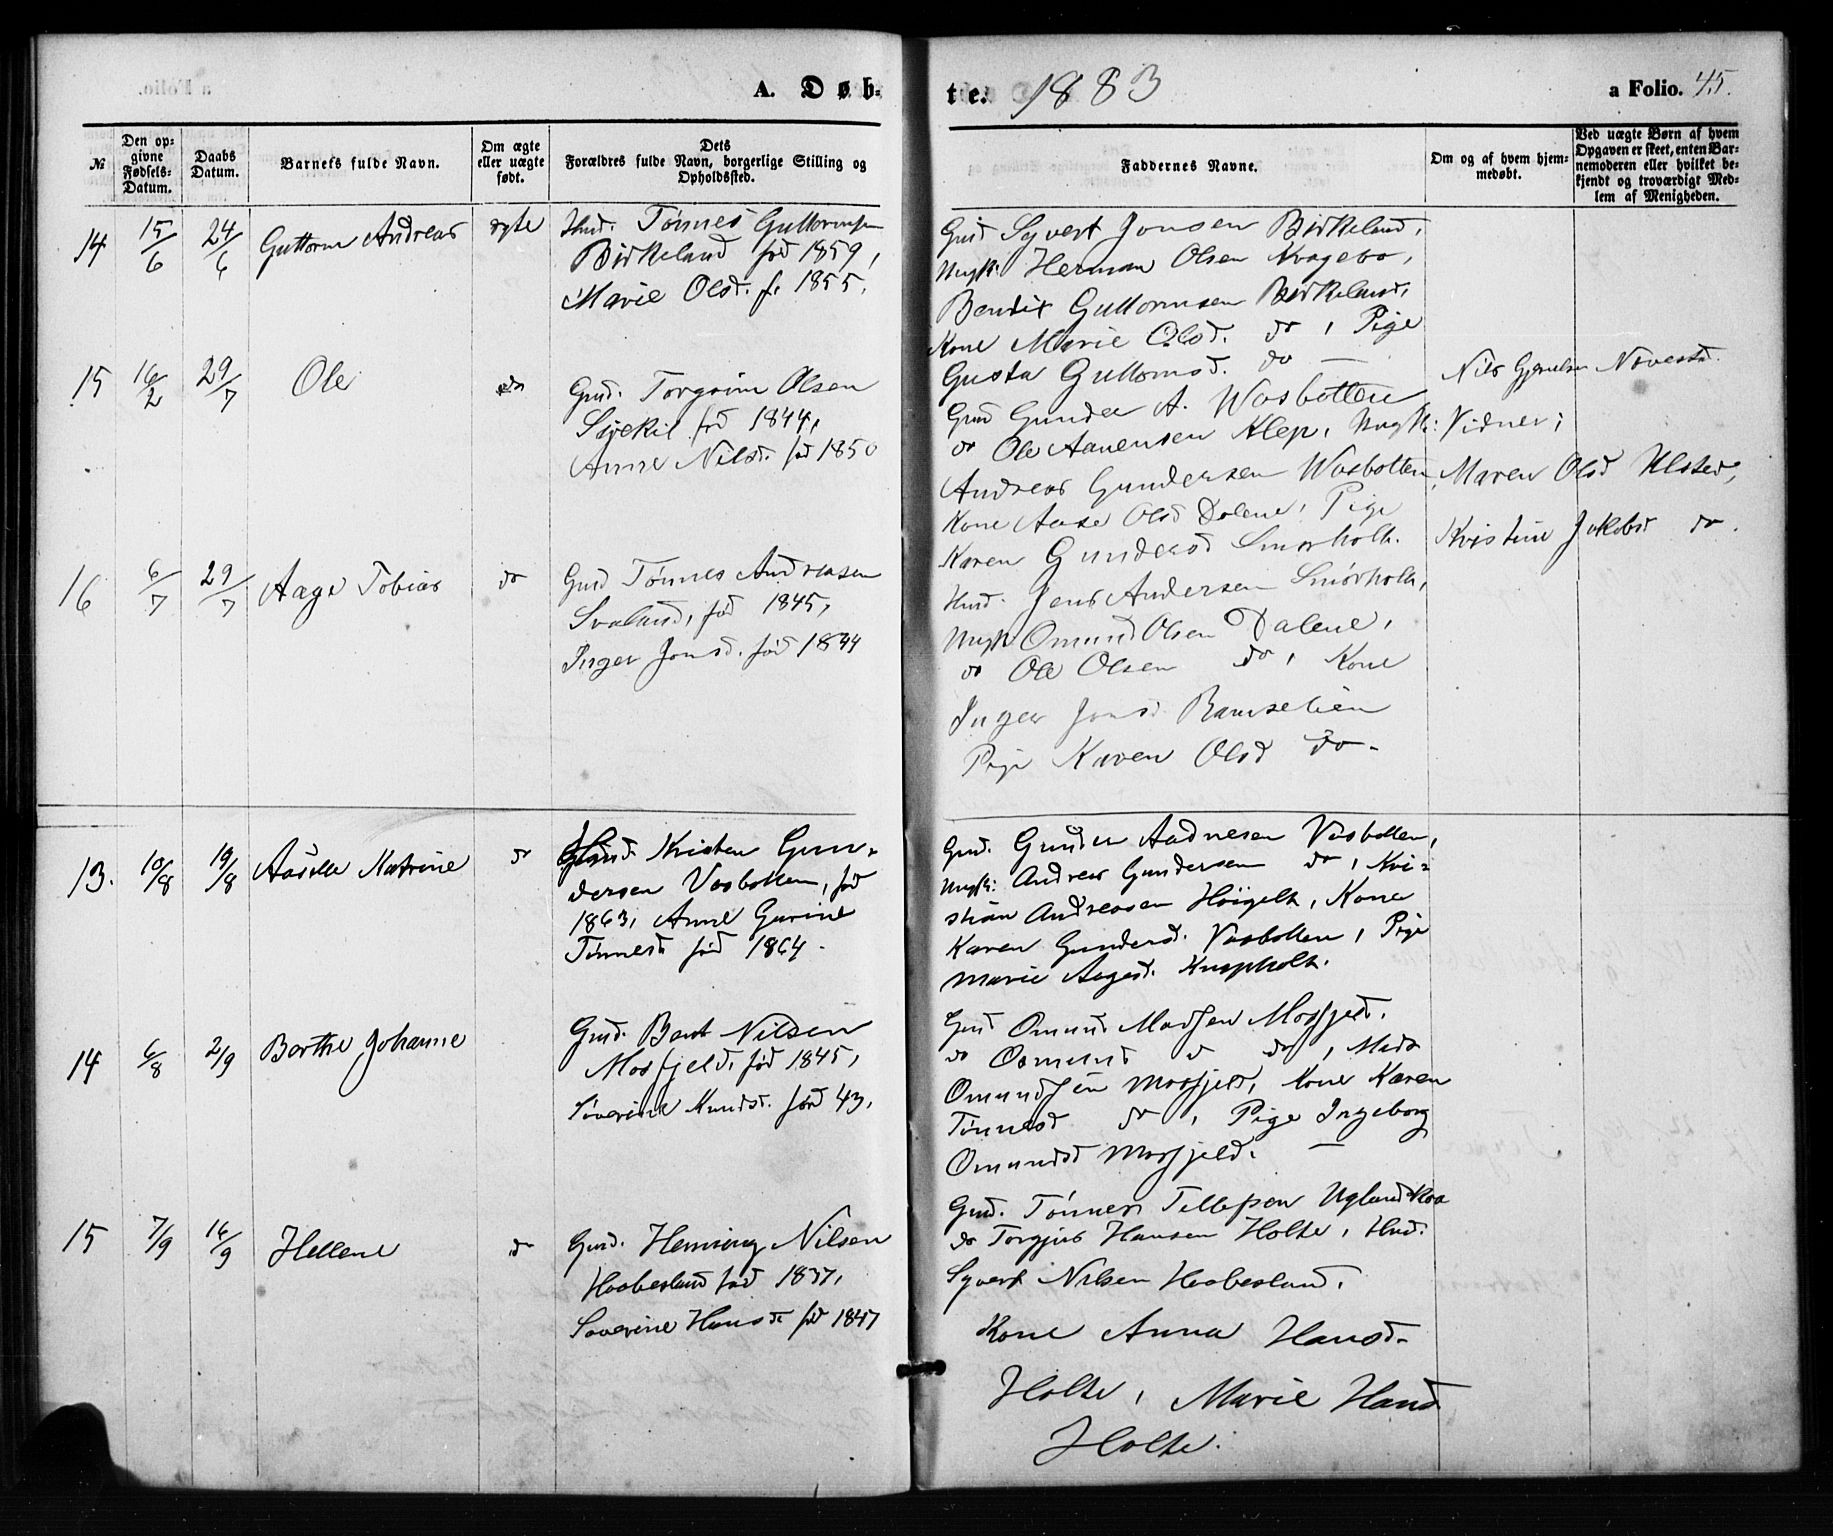 A. Døb-
te. 1883
a Folio. 45.
№
Den op-
givne
Fødsels-
Datum.
Daabs
Datum.
Barnets fulde Navn.
Om ægte
eller uægte
født.
Dets
Forældres fulde Navn, borgerlige Stilling og
Opholdssted.
Faddernes Navne.
Om og af hvem hjem-
medøbt.
Ved uægte Børn af hvem
Opgaven er skeet, enten Bar-
nemoderen eller hvilket be-
kjendt og troværdigt Med-
lem af Menigheden.
14 15/6 24/6 Guttorm Andreas ægte
Husd. Tønnes Guttormsen
Birkeland fød 1859,
Marie Olsd. f. 1855.
Gud Syvert Jonsen Birkeland,
Ungk: Herman Olsen Kvagebo,
Bendix Guttormsen Birkeland,
Kone Marie Olsd. do, Pige
Gusta Guttomsd. do —
15 16/2 29/7 Ole do
Gud. Torgrim Olsen
Sivekil fød 1844,
Anne Nilsd. fød 1850
Gud Gunder A. Vasbotten
do Ole Aanensen Klep, Ungk:
Andreas Gundersen Vasbotten,
Kone Aase Olsd Dalene, Pige
Karen Gundersd Smørholt.
Nils Gjerulsen Noveseta.
Vidner:
Maren Olsd Ulsted,
Kristine Jakobsd do.
16 6/7 29/7 Aage Tobias do
Gud Tønnes Andreasen
Svaland, fød 1845,
Inger Jonsd. fød 1844
Husd. Jens Andersen Smørholt,
Ungk Omund Olsen Dalene,
do Ole Olsen do, Kone
Inger Jonsd Ramselien
Pige Karen Olsd do-
13. 10/8 19/8 Aasille Katrine do
Husd. Kristen Gun-
dersen Vasbotten, fød
1863, Anne Gurine
Tønnesd fød 1864.
Gud. Gunder Aadnesen Vasbotten,
Ungk: Andreas Gundersen do, Kri-
stian Andreasen Høigilt, Kone
Karen Gundersd. Vasbotten, Pige
Marie Aagesd. Knapholt.
14 6/8 2/9 Berthe Johanne
Gud. Bent Nilsen
Mosfjeld, fød 1845,
Severine Knudsd. fød 43.
Gud Omund Madssen Mosfjeld.
do Osmund d do, Mads
Omundsen Mosfjeld, Kone Karen
Tønnesd do, Pige Ingeborg
Omundsd Mosfjeld. —
15 7/9 16/9 Hellene do
Gud. Henning Nilsen
Haabesland fød 1837,
Severine Hansd fød 1847
Gud. Tønnes Tellefsen Ugland
do Torgjus Hansen Holte, Husd.
Syvert Nilsen Haabesland,
Kone Anna Hansd.
Holte, Marie Hansd
Holte.